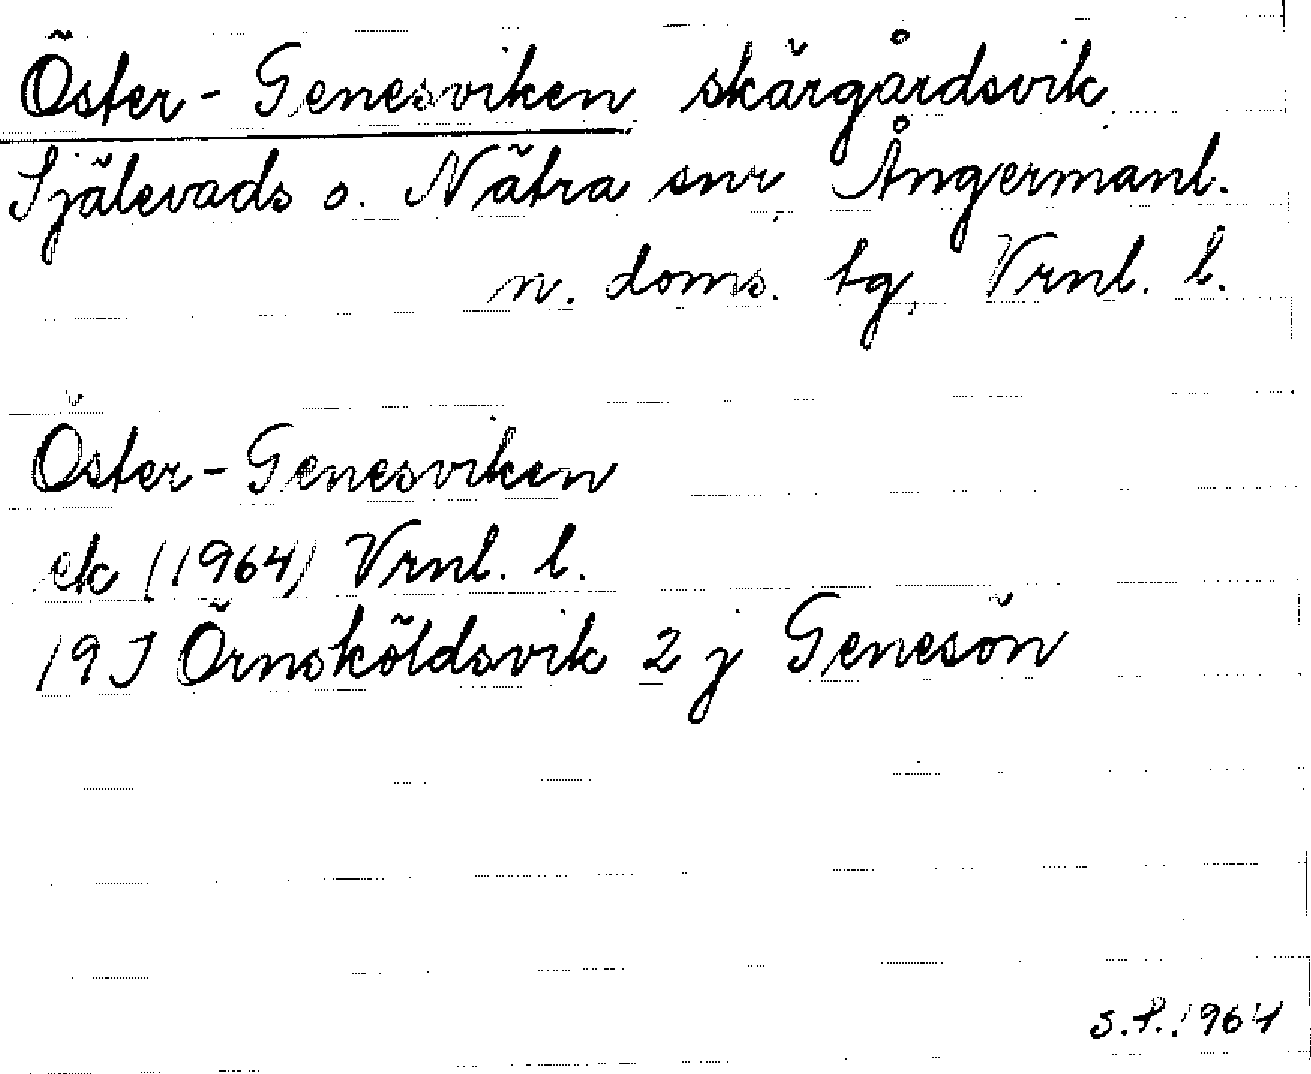 Öster-Genesviken skärgårdsvik
Själevads o. Nätra snr, Ångermanl.
n. doms. tg, Vrnl. l.
Öster-Genesviken
ek (1964) Vrnl. l.
19J Örnsköldsvik 2 j Genesön
s.f. 1964